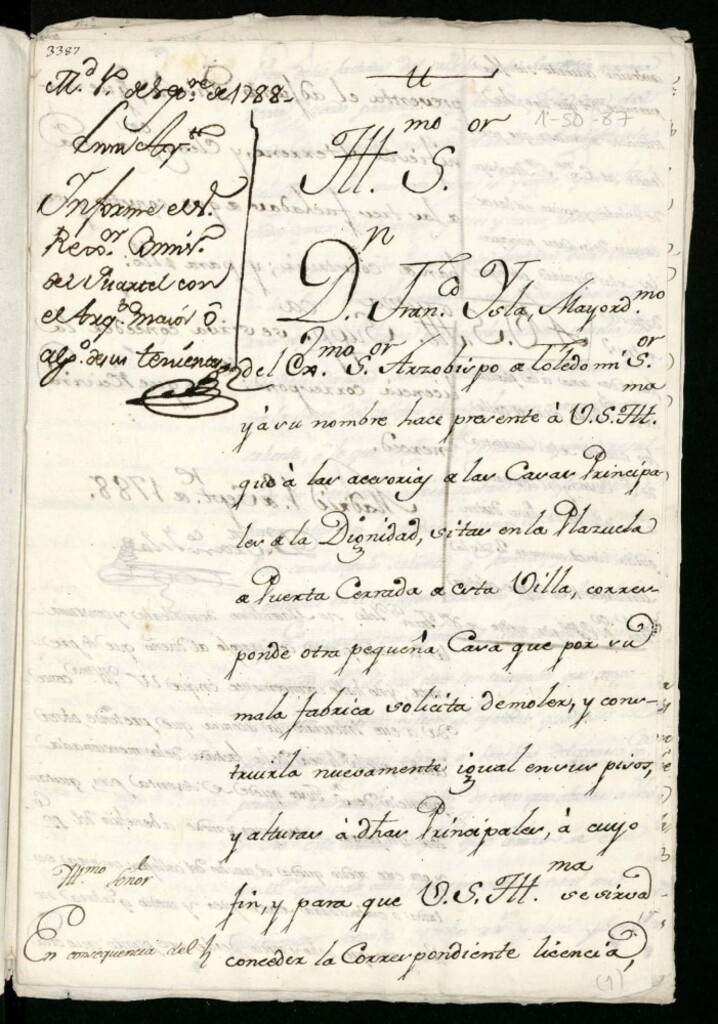 3387
M.d 1.º de Sep.re de 1788.
Informe el S.r
Rexo.or Comis.o
del Quartel con
el Arq.to maior ó
alg.o de sus tenientes
1-50-87
Ill.mo S.or
D.n Fran.co Ysla, Mayord.mo
del Ex.mo S.or Arzobispo de Toledo mi S.or
y á su nombre hace presente à V.S. Ill.ma
que à las acesorias de las Casas Principa-
les de la Dignidad, sitas en la Plazuela
de Puerta Cerrada de esta Villa, corres-
ponde otra pequeña Casa que por su
mala fabrica solicita demoler, y cons-
truirla nuevamente igual en sus pisos,
y alturas à dhas Principales, à cuyo
fin, y para que V.S. Ill.ma se sirva
conceder la Correspondiente licencia,
Ill.mo Señor
En consequencia del
(1)